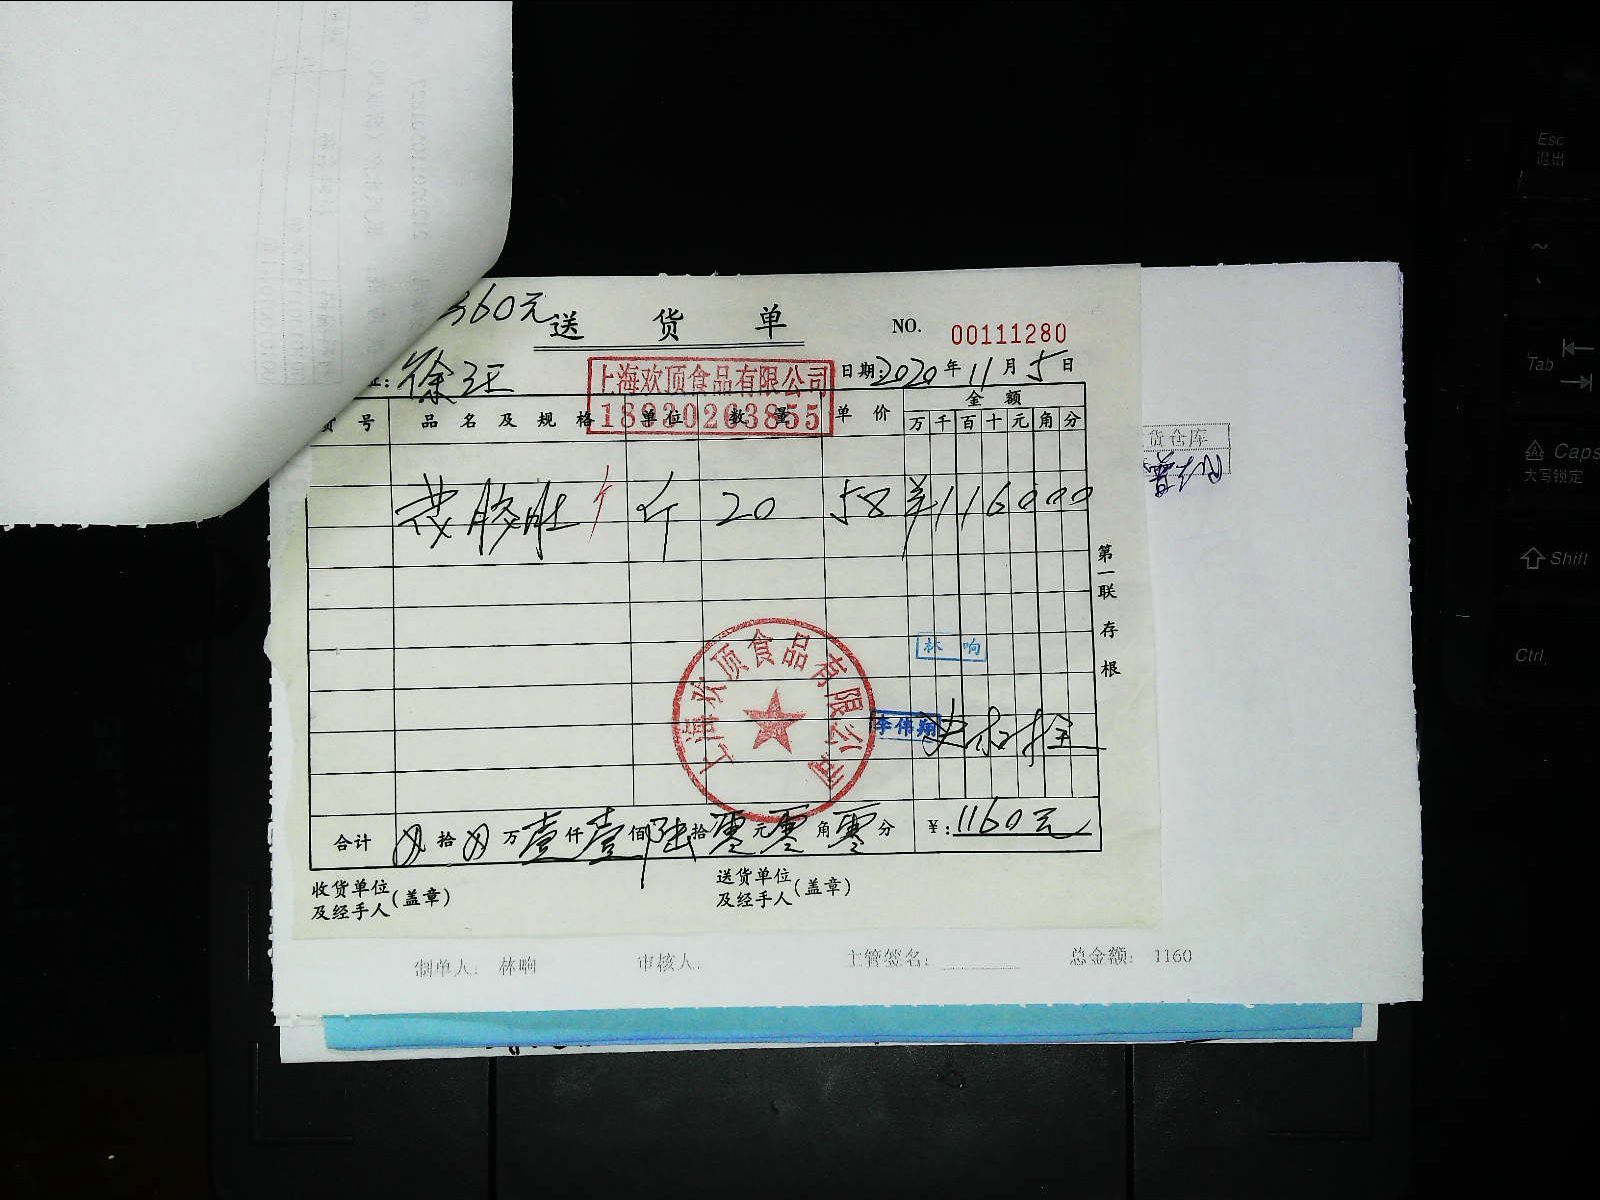 360元
送货单
NO. 00111280
徐汇
上海欢顶食品有限公司
18930263855
日期:2020年11月5日
号 品名及规格 单位 数量 单价 金额
万 千 百 十 元 角 分
斤 20 58 1 1 6 0 0 0
第一联存根
林响
李伟翔
上海欢顶食品有限公司
合计 拾 万壹仟壹佰陆拾零元零角零分 ¥:1160元
收货单位及经手人(盖章)
送货单位及经手人(盖章)
货仓库
制单人: 林响 审核人: 主管签名: 总金额: 1160
Esc
退出
Tab
Caps
大写锁定
Shift
Ctrl